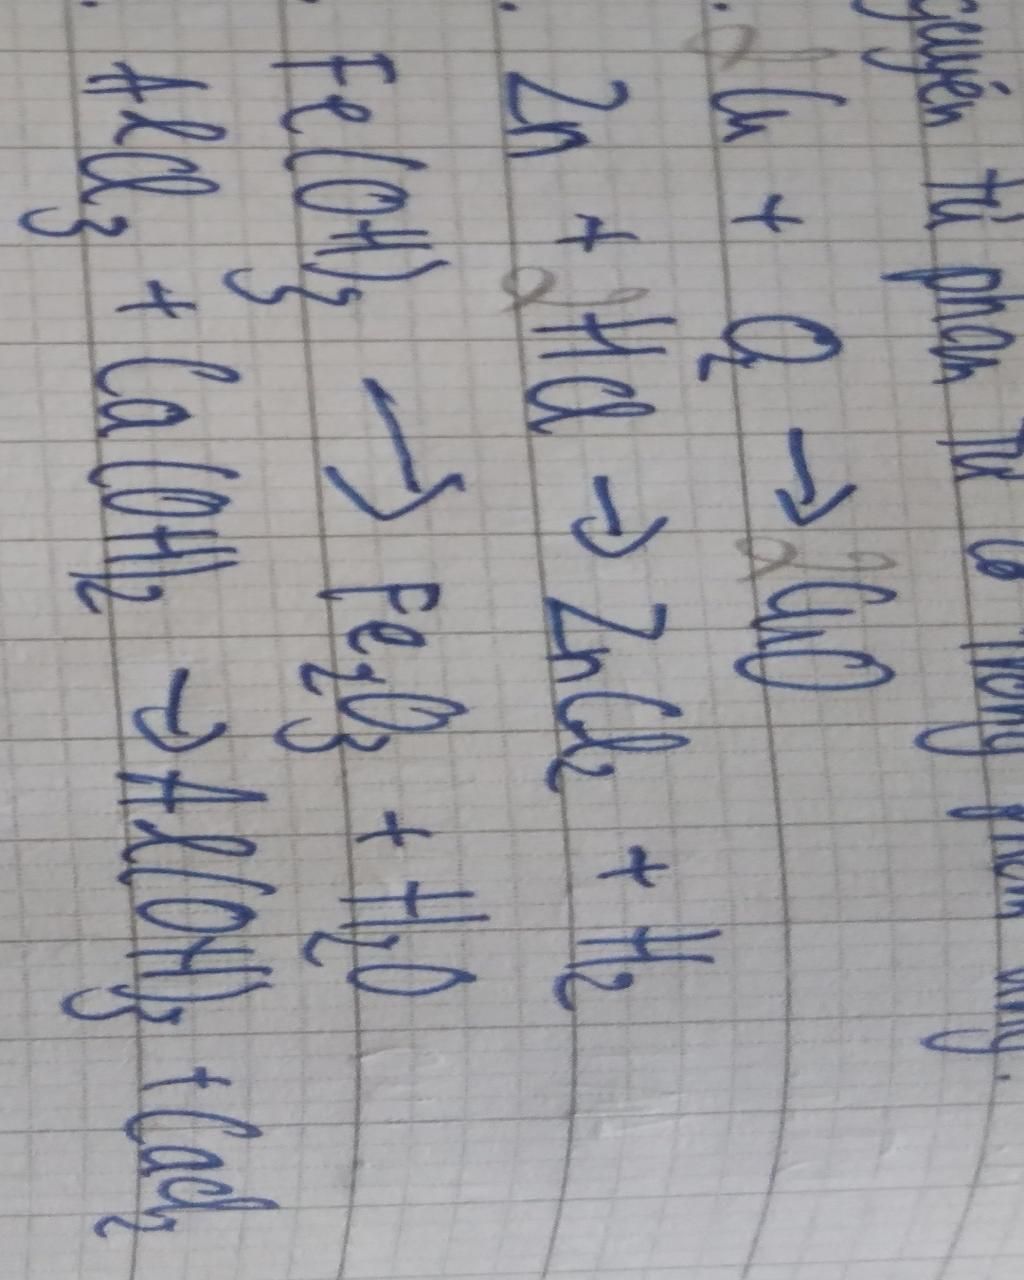 nguyên tử phân tử có trong phản ứng.
. 2Cu + O₂ → 2CuO
. Zn + 2HCl → ZnCl₂ + H₂
. Fe(OH)₃ → Fe₂O₃ + H₂O
. AlCl₃ + Ca(OH)₂ → Al(OH)₃ + CaCl₂